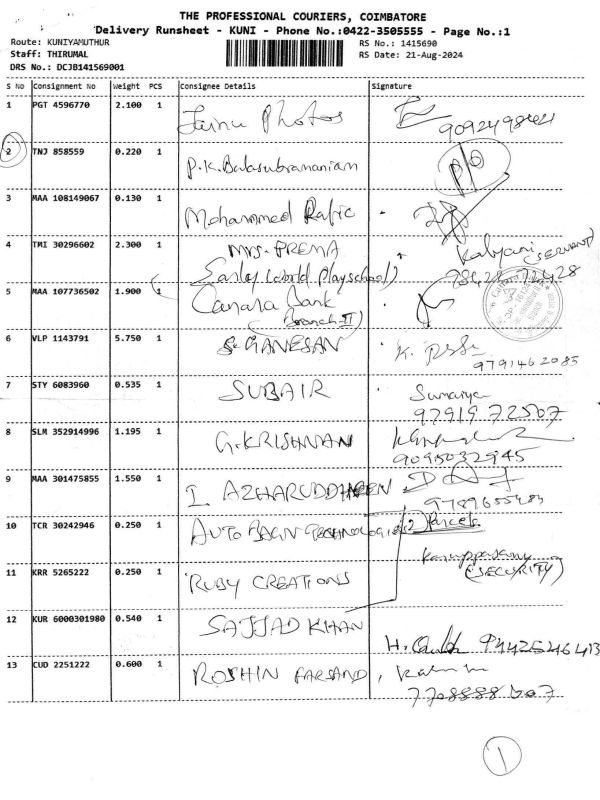 THE PROFESSIONAL COURIERS, COIMBATORE
Delivery Runsheet - KUNI - Phone No.:0422-3505555 - Page No.:1
Route: KUNIYAMUTHUR
RS No.: 1415690
Staff: THIRUMAL
RS Date: 21-Aug-2024
DRS No.: DCJB141569001
S No Consignment No Weight PCS Consignee Details Signature
1 PGT 4596770 2.100 1 Jainu Photos
2 TNJ 858559 0.220 1 P.K. Balasubramaniam P/O
3 MAA 108149067 0.130 1 Mohammed Rafic
4 TMI 30296602 2.300 1 Mrs. PREMA Kalyani (SERVANT)
Early World Playschool)
5 MAA 107736502 1.900 1 Canara Bank
(Branch-II)
6 VLP 1143791 5.750 1 S. GANESAN
9791462085
7 STY 6083960 0.535 1 SUBAIR Sumaiya
97919 72507
8 SLM 352914996 1.195 1 G. KRISHNAN
9095032945
9 MAA 301475855 1.550 1 I. AZHARUDDHEEN
10 TCR 30242946 0.250 1 AUTO TECHNOLOGIES (2) Parcels
(SECURITY)
11 KRR 5265222 0.250 1 RUBY CREATIONS
12 KUR 6000301980 0.540 1 SAJJAD KHAN
13 CUD 2251222 0.600 1 ROSHIN FARSAND,
1